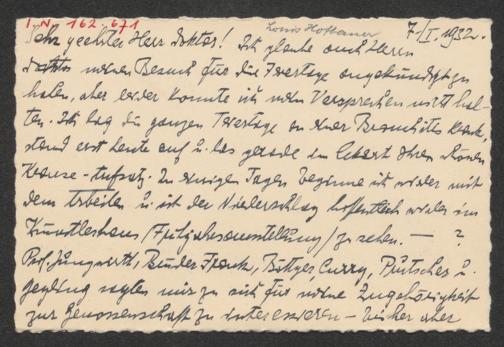 I.N. 162.671
Louis Hofbauer
7./I. 1932.
Sehr geehrter Herr Doktor! Ich glaube auch Herrn
Doktor meinen Besuch für die Feiertage angekündigt zu
haben, aber leider konnte ich mein Versprechen nicht hal-
ten. Ich lag die ganzen Feiertage an einer Bronchitis krank,
stand erst heute auf u. las gerade im Eckart Ihren schönen
Krause-Aufsatz. In einigen Tagen beginne ich wieder mit
dem Arbeiten u. ist der Niederschlag hoffentlich wieder im
Künstlerhaus /Frühjahrsausstellung/ zu sehen. — ?
Prof. Jungwirth, Bruder Frank, Curry, Pütscher u.
zur Genossenschaft zu interessieren – bisher aber